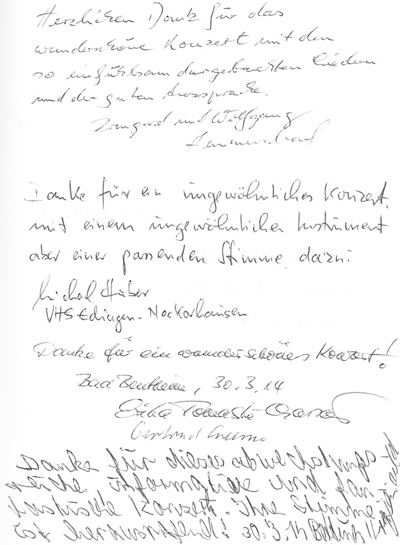 Herzlichen Dank für das
wunderschöne Konzert mit den
so einfühlsam dargebrachten Liedern
und der guten Aussprache.
Irmgard und Wolfgang
Danke für ein ungewöhnliches Konzert
mit einem ungewöhnlichen Instrument
aber einer passenden Stimme dazu!
Michael Huber
VHS Edingen-Neckarhausen
Danke für ein wunderschönes Konzert!
Bad Bentheim, 30.3.14
Gertrud
Danke für diese abwechslungs
reiche informative und fan-
tastische Konzert. Ihre Stimme
ist hervorragend! 30.3.14